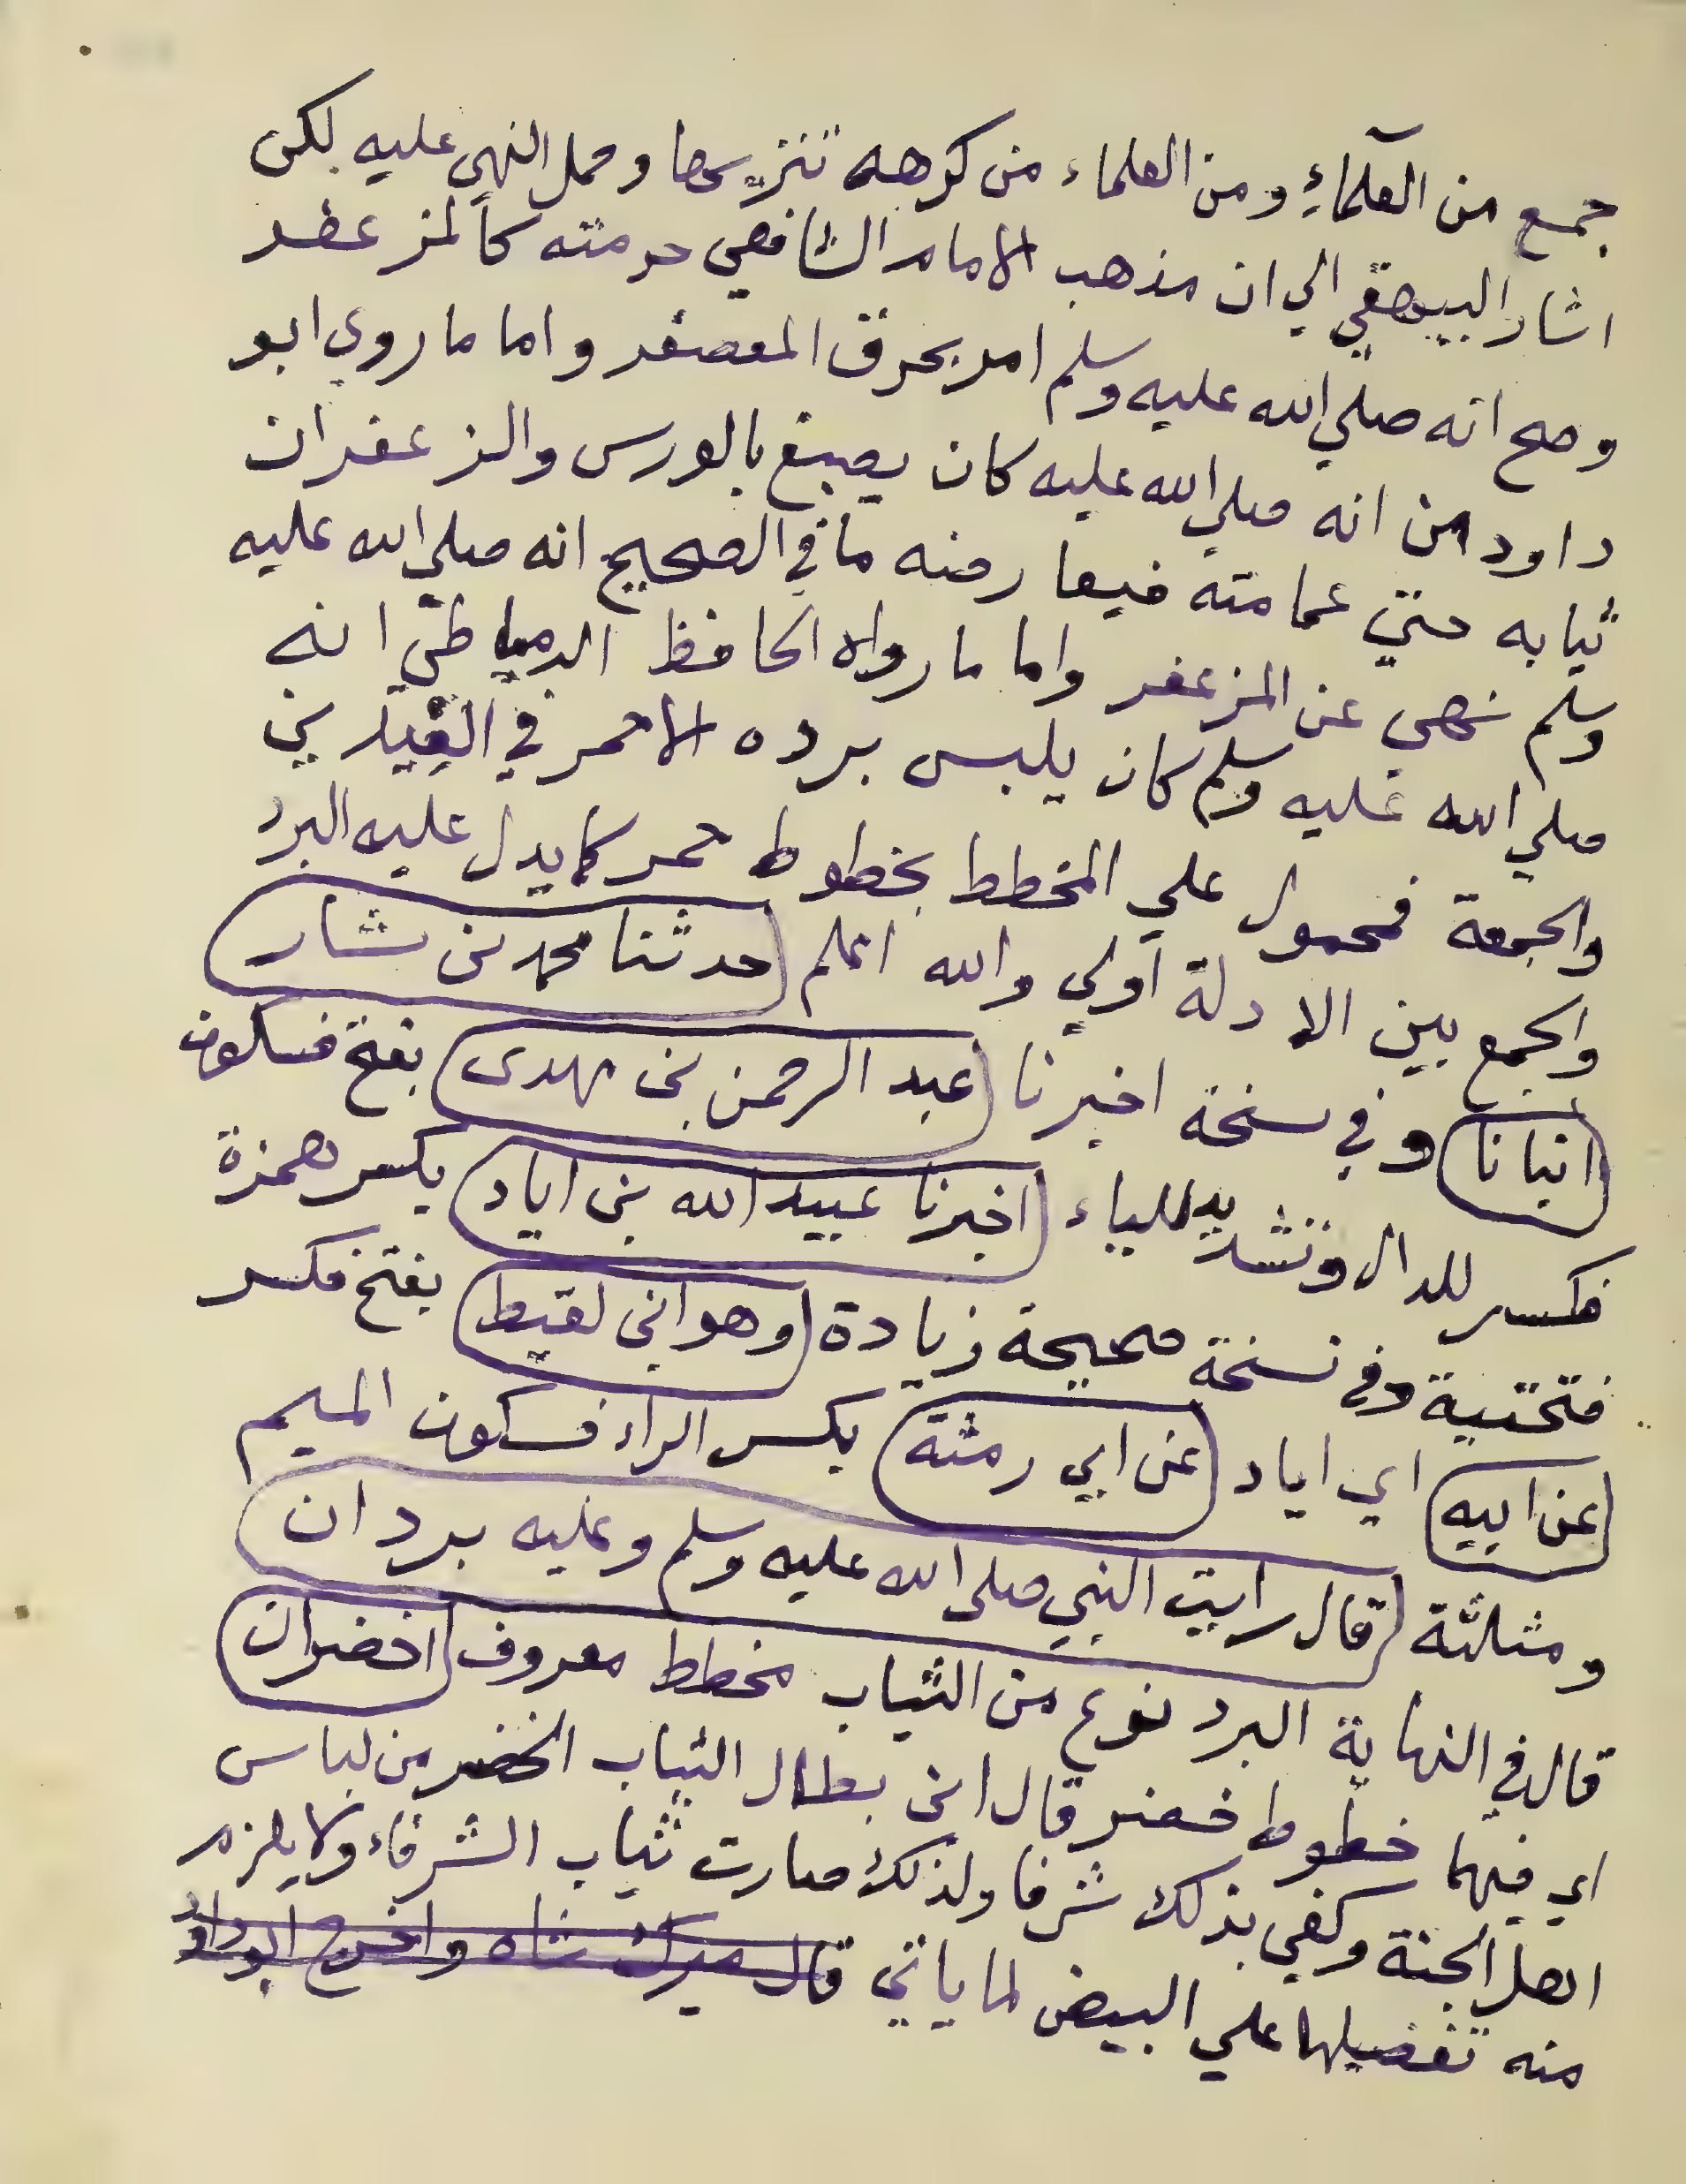 جمع من العلماء ومن العلماء من كرهه تنزيها وحمل النهي عليه لكن
اشار البيهقي الي ان مذهب الامام الشافعي حرمته كالمزعفر
وصح انه صلي الله عليه وسلم امر بحرق المعصفر واما ما روي ابو
داود من انه صلي الله عليه كان يصبغ بالورس والزعفران
ثيابه حتي عمامته فيعارضه ما في الصحيح انه صلي الله عليه
وسلم نهي عن المزعفر واما ما رواه الحافظ الدمياطي انه
صلي الله عليه وسلم كان يلبس برده الاحمر في العيدين
والجمعة فمحمول علي المخطط بخطوط حمر كما يدل عليه البرد
والجمع بين الادلة اولي والله اعلم حدثنا محمد بن بشار
انبانا وفي نسخة اخبرنا عبد الرحمن بن مهدى بفتح فسكون
فكسر للدال وتشديد للياء اخبرنا عبيد الله بن اياد بكسر همزة
فتحتية وفي نسخة صحيحة زيادة وهو ابن لقيط بفتح فكسر
عن ابيه اي اياد عن ابي رمثة بكسر الراء فسكون الميم
ومثلثة قال رايت النبي صلى الله عليه وسلم وعليه بردان
قال في النهاية البرد نوع من الثياب مخطط معروف اخضران
اي فيهما خطوط خضر قال ابن بطال الثياب الخضر من لباس
اهل الجنة وكفي بذلك شرفا ولذلك صارت ثياب الشرفاء ولا يلزم
منه تفضيلها علي البيض لما ياتي قال ميرك شاه واخرج ابو داود